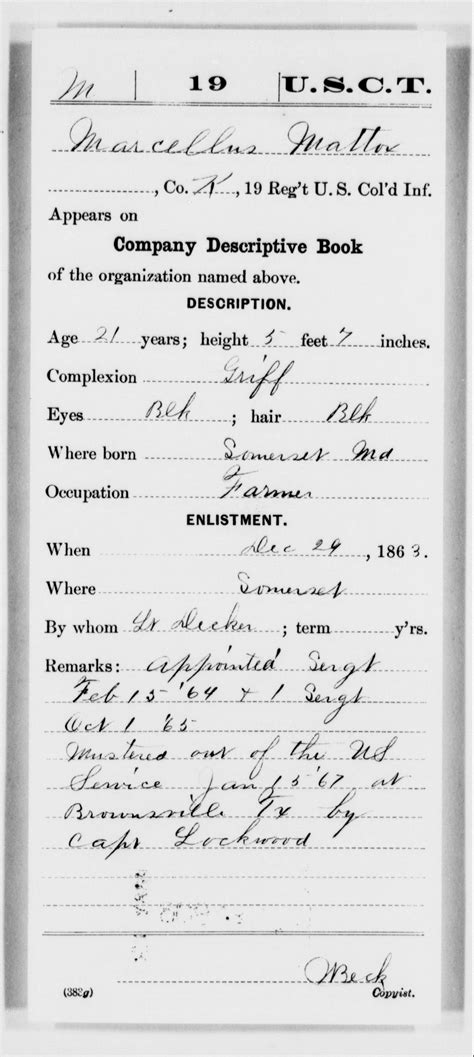 M 19 U.S.C.T.
Marcellus Mattox
, Co. K, 19 Reg't U. S. Col'd Inf.
Appears on
Company Descriptive Book
of the organization named above.
DESCRIPTION.
Age 21 years; height 5 feet 7 inches.
Complexion Griff
Eyes Blk ; hair Blk
Where born Somerset Md
Occupation Farmer
ENLISTMENT.
When Dec 29, 1863.
Where Somerset
By whom Lt Decker ; term y'rs.
Remarks: Appointed Sergt
Feb 15 '64 & 1 Sergt
Oct 1 '65
Mustered out of the US
Service Jan 15 '67 at
Brownsville Tx by
Capt Lockwood
Beck
(383g) Copyist.